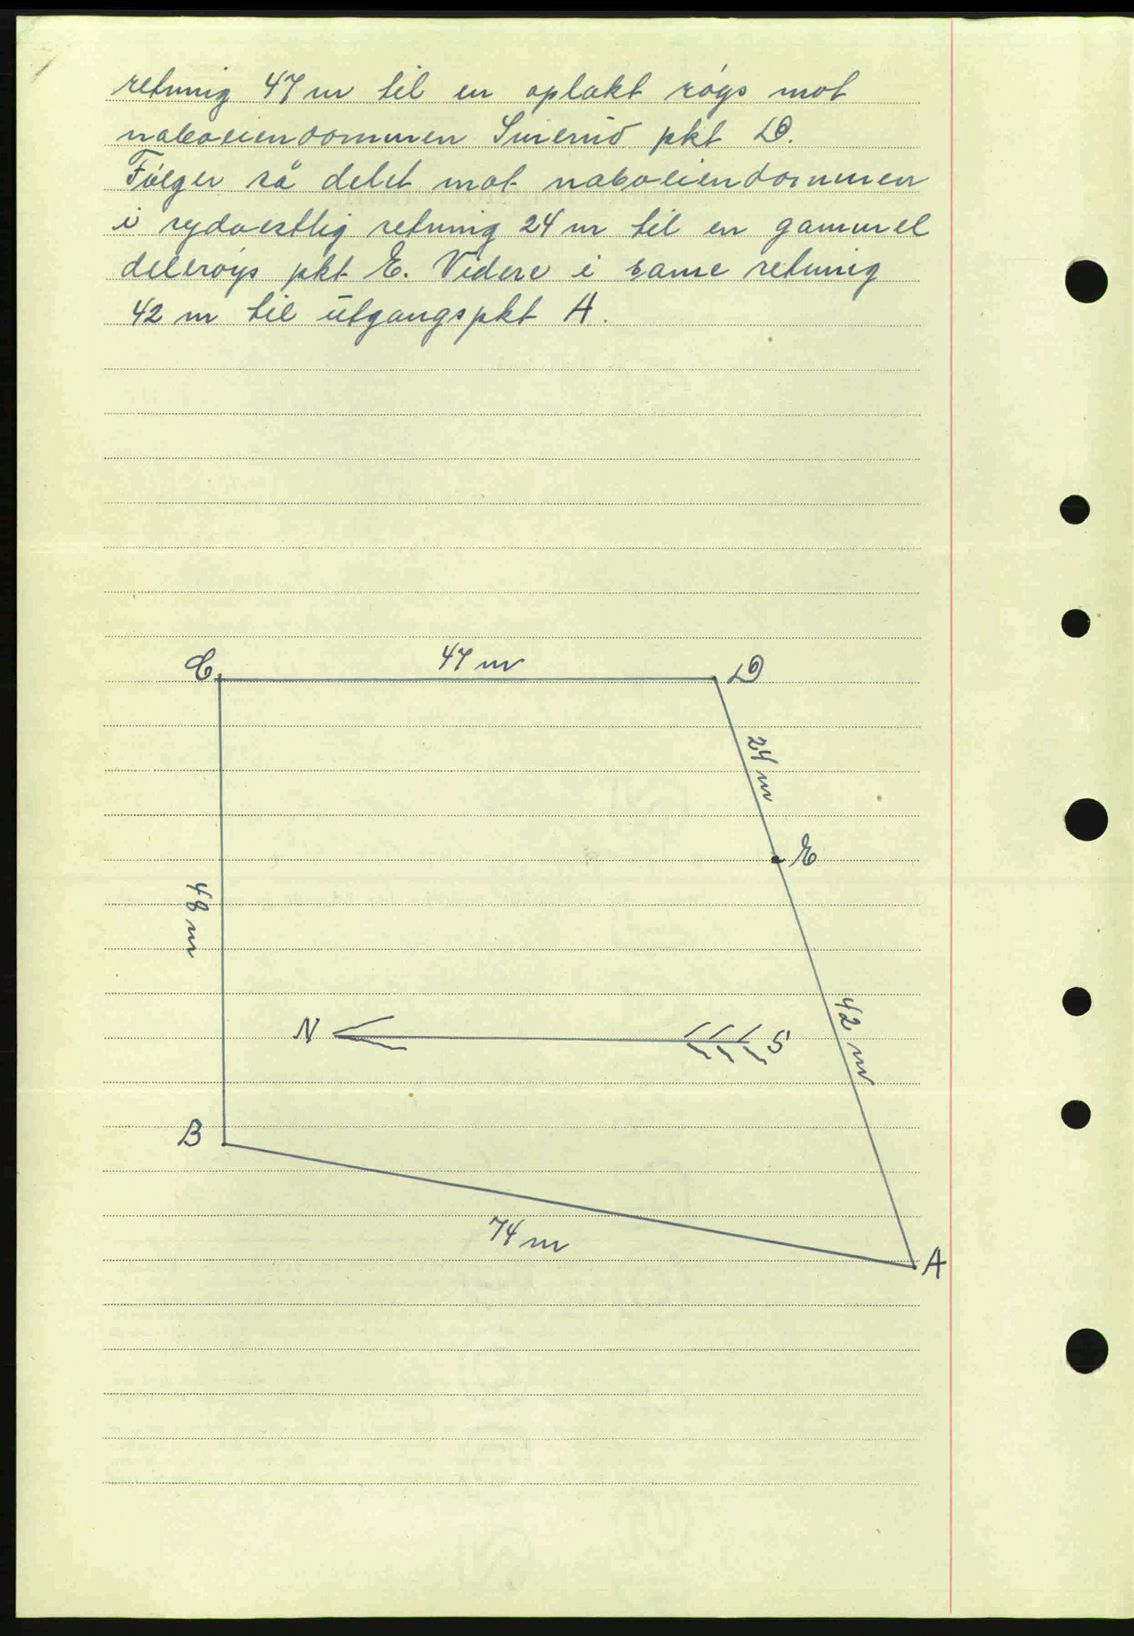 retning 47 m til en oplakt røys mot
naboeiendommen pkt D.
Følger så delet mot naboeiendommen
i sydvestlig retning 24 m til en gammel
delerøys pkt E. Videre i same retning
42 m til utgangspkt A.
47 m
C
D
24 m
E
48 m
42 m
N
S
B
74 m
A